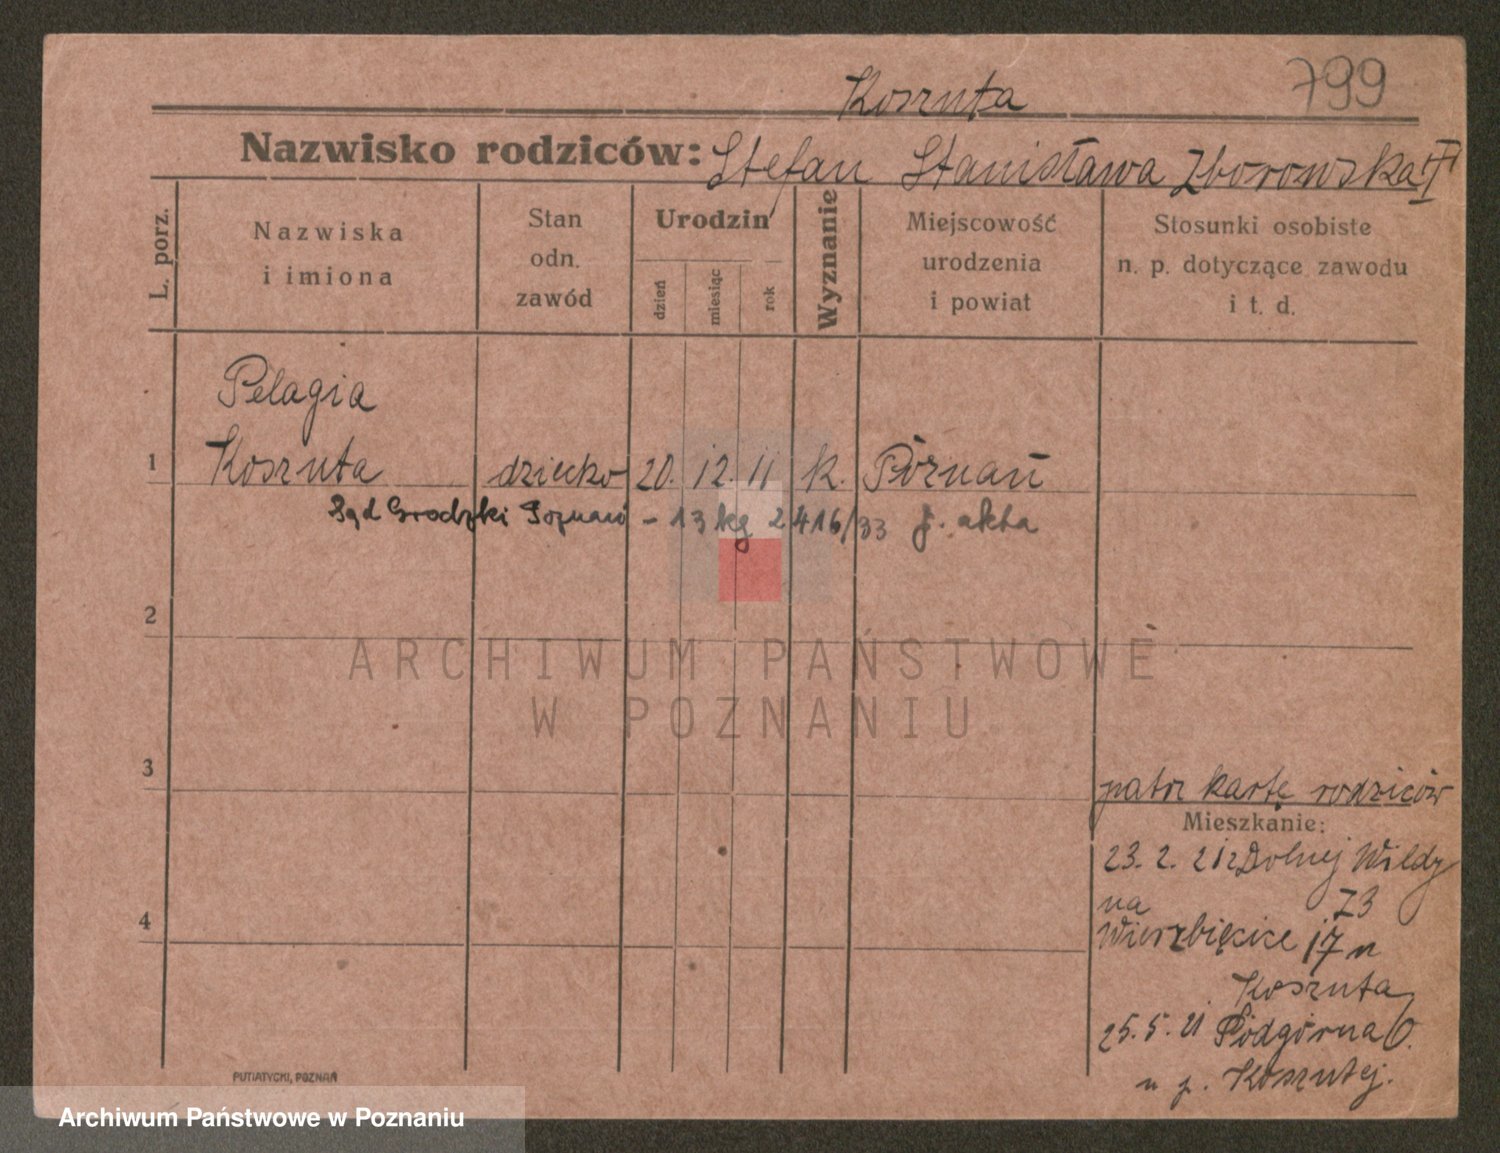 799
Koszuta
Nazwisko rodziców: Stefan Stanisława Zborowska II
L. porz.
Nazwiska
i imiona
Stan
odn.
zawód
Urodzin
dzień
miesiąc
rok
Wyznanie
Miejscowość
urodzenia
i powiat
Stosunki osobiste
n. p. dotyczące zawodu
i t. d.
Pelagia
1 Koszuta dziecko 20. 12. 11 k. Poznań
Sąd Grodzki Poznań - 13 kg 2416/33 j. akta
2
ARCHIWUM PAŃSTWOWE
W POZNANIU
3
patrz kartę rodziców
Mieszkanie:
23. 2. 21 z Dolnej Wildy
na 73
4
Wierzbięcice 17 n
Koszuta
25. 5. 21 Podgórna 6.
u p. Koszutej.
PUTIATYCKI, POZNAŃ
Archiwum Państwowe w Poznaniu